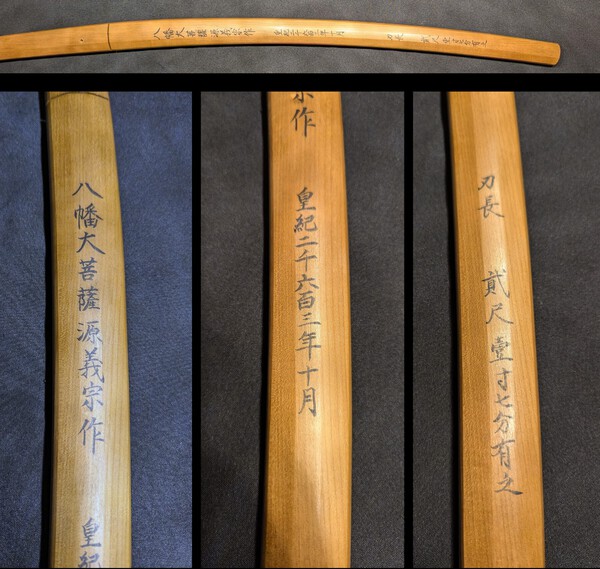 八幡大菩薩源義宗作 皇紀二千六百三年十月 刃長 貳尺壹寸七分有之
八幡大菩薩源義宗作 皇紀
宗作 皇紀二千六百三年十月
刃長 貳尺壹寸七分有之